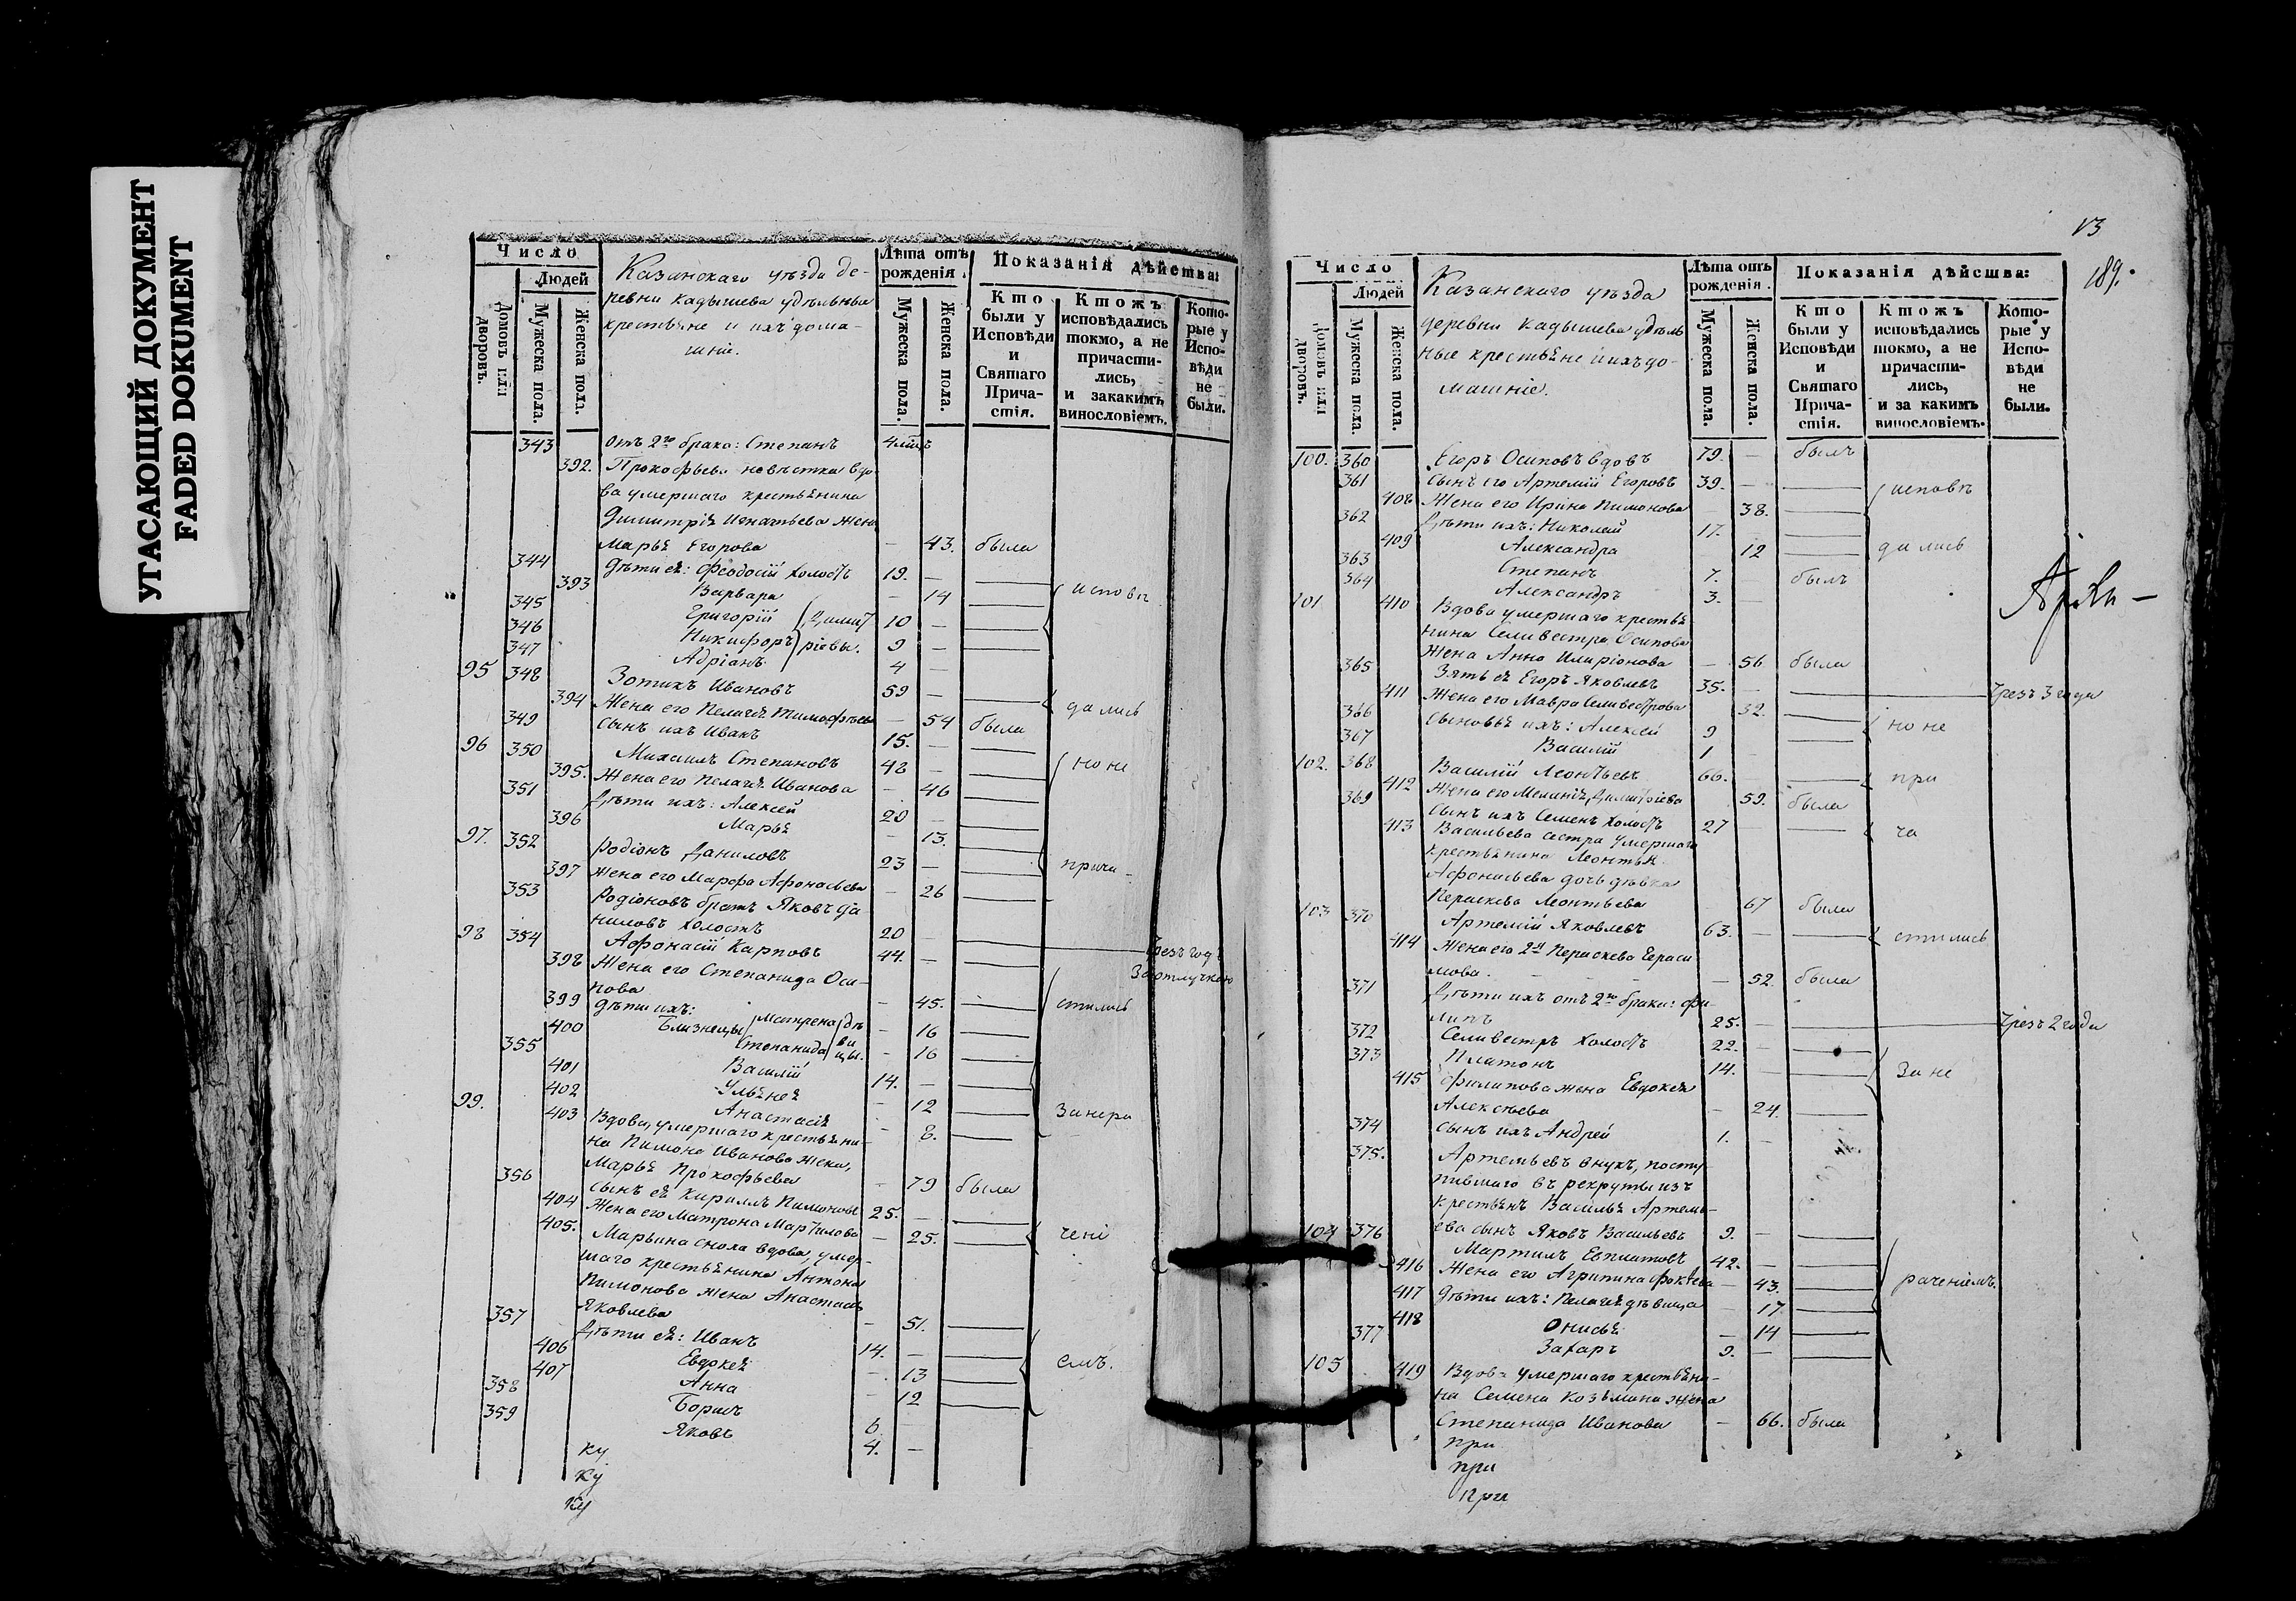 УГАСАЮЩИЙ ДОКУМЕНТ
FADED DOKUMENT
Число
Людей
Домовъ или дворовъ.
Мужеска пола.
Женска пола.
Казанскаго уѣзда де-
ревни Кадышева удѣльные
крестьяне и ихъ дома-
шніе.
Лѣта отъ рожденія.
Мужеска пола.
Женска пола.
Показанія дѣйства:
Кто были у Исповѣди и Святаго Причастія.
Ктожъ исповѣдались токмо, а не причастились, и закакимъ винословіемъ.
Которые у Исповѣди не были.
343 отъ 2го брака: Степанъ
392. Прокофьева невѣстка вдо-
ва умершаго крестьянина
Димитрія Игнатьева жена
Марья Егорова – 43. была
344 Дѣти ея: Феодосій холостъ 19. –
393 Варвара – 14
исповѣ
345 Григорій 10 –
Димит
346 Никифоръ 9 –
ріевы.
347 Адріанъ 4 –
95 348 Зотикъ Ивановъ 59 –
394 Жена его Пелагея Тимофѣева – 54 была
дались
349 Сынъ ихъ Иванъ 15. –
96 350 Михаилъ Степановъ 48 –
но не
395. Жена его Пелагея Иванова – 46
351 Дѣти ихъ: Алексей 20 –
396 Марья – 13.
97. 352 Родіонъ Даниловъ 23 –
397 Жена его Марфа Афонасьева – 26
прича-
353 Родіоновъ братъ Яковъ Да
ниловъ холостъ 20 –
98 354 Афонасій Карповъ 44. –
Чрезъ годъ
За отлучкою
398 Жена его Степанида Оси-
пова – 45.
стились
399 Дѣти ихъ:
Близнецы Матрена – 16
дѣ
400 Степанида – 16
ви
цы.
355 Василій 14. –
401 Ульянея – 12
402 Анастасія – 8.
Занера
99. 403 Вдова, умершаго крестьяни-
на Пимона Иванова жена,
Марья Прокофьева – 79 была
356 Сынъ ея Кириллъ Пимоновъ 25. –
404 Жена его Матрона Мартилова – 25.
чені
405. Марьина сноха вдова, умер-
шаго крестьянина Антона
Пимонова жена Анастасія
Яковлева – 51.
357 Дѣти ея: Иванъ 14. –
406 Евдокея – 13
емъ.
407 Анна – 12
358 Борисъ 6
359 Яковъ 4. –
ку
ку
ку
13
189.
Число
Людей
Домовъ или дворовъ.
Мужеска пола.
Женска пола.
Казанскаго уѣзда
деревни Кадышева удѣль
ные крестьяне и ихъ до-
машніе.
Лѣта отъ рожденія.
Мужеска пола.
Женска пола.
Показанія дѣйсшва:
Кто были у Исповѣди и Святаго Причастія.
Ктожъ исповѣдались токмо, а не причастились, и за какимъ винословіемъ.
Которые у Исповѣди не были.
100. 360 Егоръ Осиповъ вдовъ 79. – былъ
361 Сынъ его Артемій Егоровъ 39. –
исповѣ
408 Жена его Ирина Пимонова – 38.
362 Дѣти ихъ: Николай 17.
409 Александра 12
дались
363 Степанъ 7. былъ
364 Александръ 3. –
101 410 Вдова умершаго крестья
нина Селивестра Осипова
жена Анна Иларіонова – 56 была
365 Зять ея Егоръ Яковлевъ 35. –
Чрезъ 3 года
411 Жена его Мавра Селивестрова 32.
366 Сыновья ихъ: Алексей 9
но не
367 Василій 1 –
102. 368 Василій Леонтьевъ 66. –
при
412 Жена его Меланія Димитріева 59. была
369 Сынъ ихъ Семенъ холостъ 27
ча
413 Васильева сестра умершаго
крестьянина Леонтья
Афонасьева дочь дѣвка
Параскева Леонтьева 67 была
103 370 Артемій Яковлевъ 63. –
стились
414 Жена его 2я Параскева Гераси
мова. – 52. была
371 Дѣти ихъ отъ 2го брака: Фи-
липъ 25. –
Чрезъ 2 года
372 Селивестръ холостъ 22. –
373 Платонъ 14. –
За не
415 Филипова жена Евдокея
Алексѣева – 24.
374 Сынъ ихъ Андрей 1. –
375. Артемьевъ внукъ, посту-
пившаго въ рекруты изъ
крестьянъ Василья Артемь-
ева сынъ Яковъ Васильевъ 9. –
104 376 Мартинъ Евпиатовъ 42. –
416 Жена его Агрипина Фоктева – 43.
раченіемъ.
417 Дѣти ихъ: Пелагея дѣвица 17.
418 Онисья – 14
377 Захаръ 9. –
105 419 Вдова умершаго крестьяни-
на Семена Козьмина жена
Степанида Иванова – 66. была
при
при
при